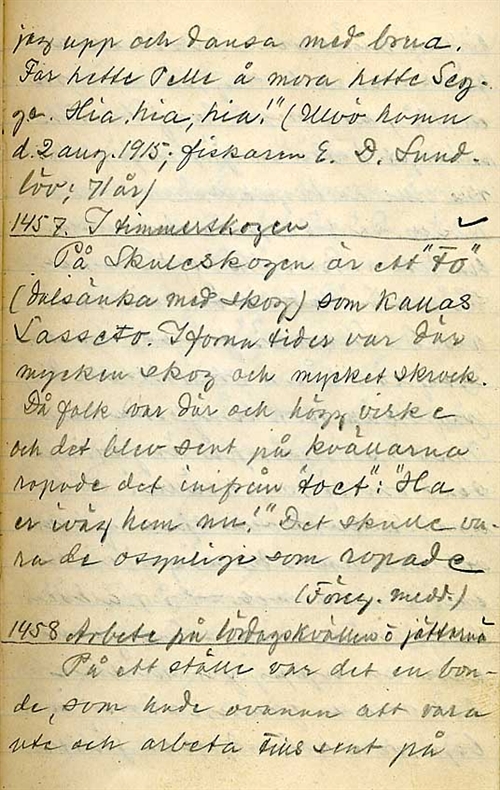 jag upp och dansa med brua.
Far hette Pelle å mora hette Seg-
ga. Hia, hia, hia!" (Ulvö hamn
d. 2 aug. 1915; fiskaren E. D. Sund-
löv; 71 år)
1457. I timmerskogen ✓
På Skuleskogen är ett "to"
(dalsänka med skog) som kallas
Lasseto. I forna tider var där
mycken skog och mycket skrock.
Då folk var där och högg virke
och det blev sent på kvällarna
ropade det inifrån "toet": "Ha
er iväg hem nu!" Det skulle va-
ra de osynliga som ropade
(Föreg. medd.)
1458 Arbete på lördagskvällen o jättarna
På ett ställe var det en bon-
de, som hade ovanan att vara
ute och arbeta tills sent på